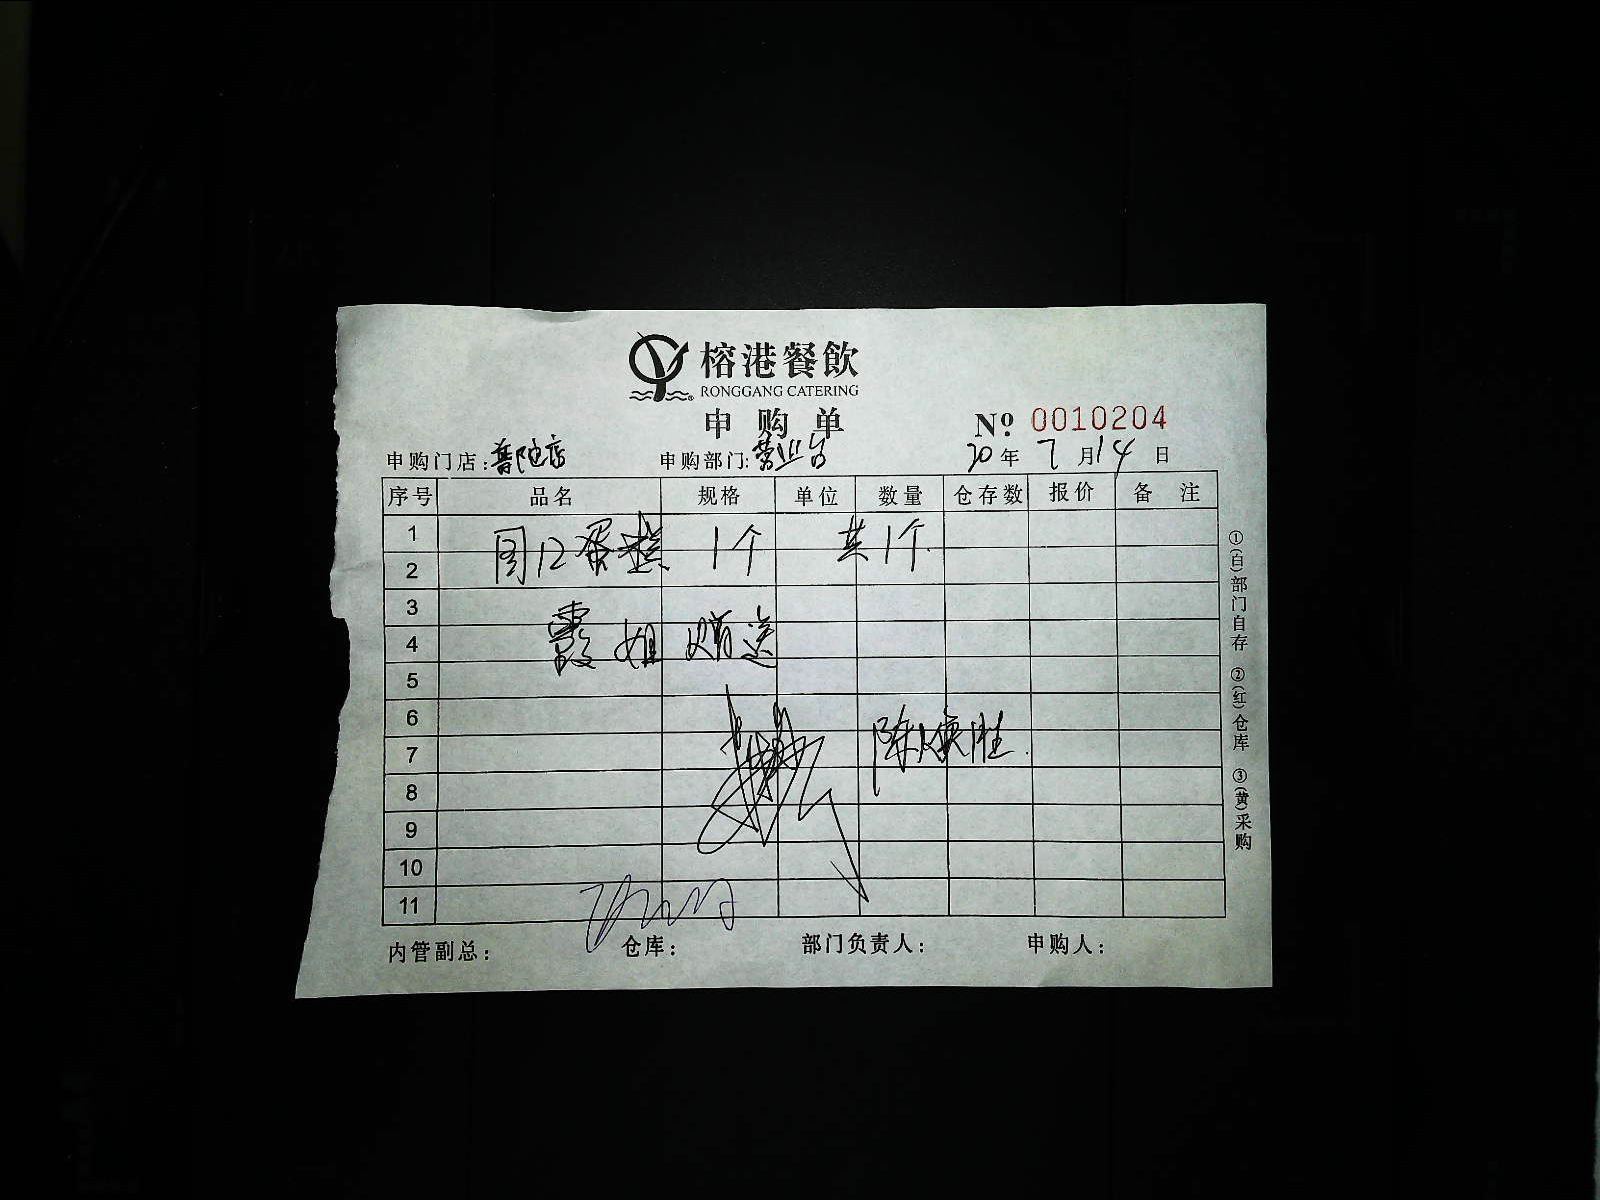 榕港餐飲
RONGGANG CATERING
申购单
№ 0010204
申购门店:普陀店 申购部门:营业台 20年7月14日
序号 品名 规格 单位 数量 仓存数 报价 备注
1
2
蛋糕 1个 共1个
3
4
霞姐 赠送
5
6
7
陈焕胜
8
9
10
11
内管副总: 仓库: 部门负责人: 申购人:
①(白)部门自存 ②(红)仓库 ③(黄)采购